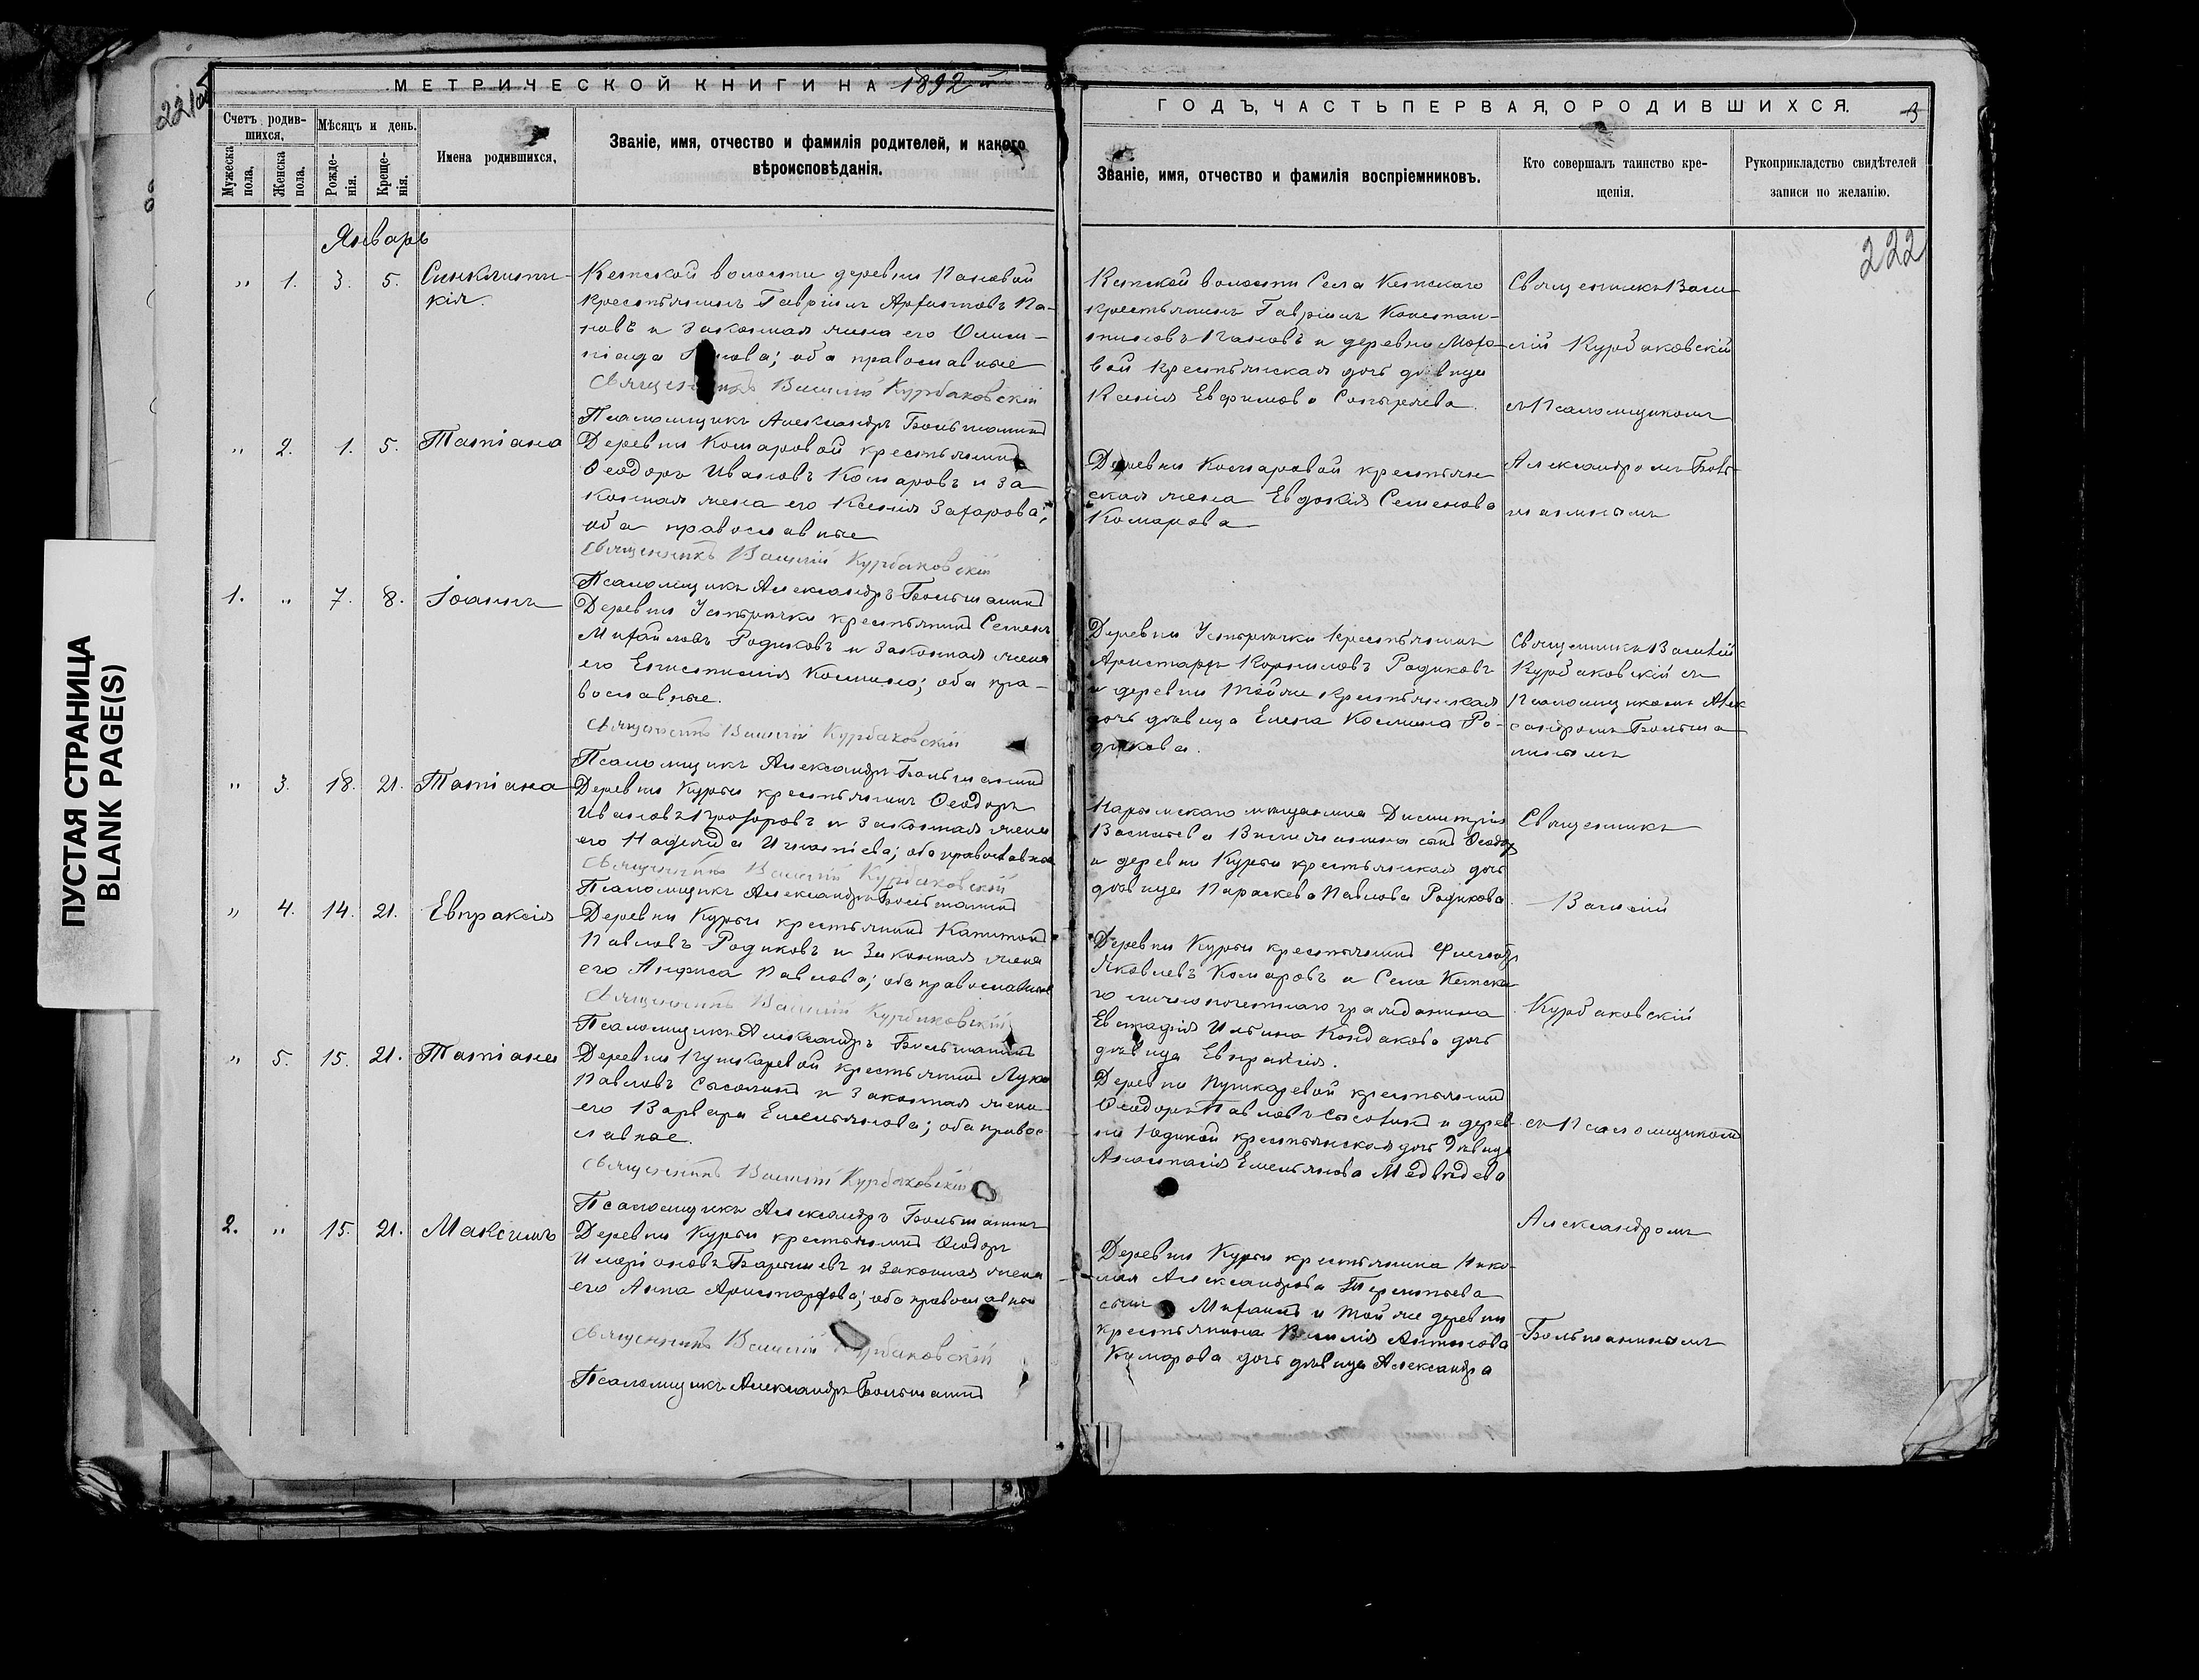 221об
МЕТРИЧЕСКОЙ КНИГИ НА 1892 й
Счетъ родившихся,
Мѣсяцъ и день.
Имена родившихся,
Званіе, имя, отчество и фамилія родителей, и какого
вѣроисповѣданія.
Мужеска пола.
Женска пола.
Рожде-нія.
Креще-нія.
Январь
„ 1. 3. 5. Синклити-
кія.
Кетской волости деревни Пановой
крестьянинъ Гавріилъ Па-
новъ и законная жена его Олим-
піада оба православные
Священникъ Василій Курбаковскій
Псаломщикъ Александръ Большанинъ
„ 2. 1. 5. Татіана
Деревни Комаровой крестьянинъ
Ѳеодоръ Ивановъ Комаровъ и за-
конная жена его Ксенія Захарова;
оба православные
Священникъ Василій Курбаковскій
Псаломщикъ Александръ Большанинъ
1. „ 7. 8. Іоаннъ
Деревни Устьрѣчки крестьянинъ Семенъ
Михайловъ Родиковъ и законная жена
его Космина; оба пра-
вославные.
Священникъ Василій Курбаковскій
Псаломщикъ Александръ Большанинъ
„ 3. 18. 21. Татіана
Деревни Курьи крестьянинъ Ѳеодоръ
Ивановъ Прохоровъ и законная жена
его Надежда Игнатіева; оба православные
Священникъ Василій Курбаковскій
Псаломщикъ Александръ Большанинъ
„ 4. 14. 21. Евпраксія
Деревни Курьи крестьянинъ Капитонъ
Павловъ Родиковъ и законная жена
его Анфиса Павлова; оба православные
Священникъ Василій Курбаковскій
Псаломщикъ Александръ Большанинъ
„ 5. 15. 21. Татіана
Деревни Пушкаревой крестьянинъ Лука
Павловъ Сысолинъ и законная жена
его Варвара Емельянова; оба право-
славные.
Священникъ Василій Курбаковскій
Псаломщикъ Александръ Большанинъ
2. „ 15. 21. Максимъ
Деревни Курьи крестьянинъ Ѳеодоръ
Иларіоновъ Барышевъ и законная жена
его Анна Аристархова; оба православные
Священникъ Василій Курбаковскій
Псаломщикъ Александръ Большанинъ
ГОДЪ, ЧАСТЬ ПЕРВАЯ, О РОДИВШИХСЯ.
222
Званіе, имя, отчество и фамилія воспріемниковъ.
Кто совершалъ таинство кре-
щенія.
Рукоприкладство свидѣтелей
записи по желанію.
Кетской волости Села Кетскаго
крестьянинъ Гавріилъ Констан-
тиновъ Пановъ и деревни Мохо-
вой крестьянская дочь дѣвица
Ксенія Евфимова
Деревни Комаровой крестьян-
ская жена Евдокія Семенова
Комарова
Деревни Устьрѣчки крестьянинъ
Аристархъ Корниловъ Родиковъ
и деревни той же крестьянская
дочь дѣвица Елена Космина Ро-
дикова.
Нарымскаго мѣщанина Димитрія
Васильева сынъ Ѳеодоръ
и деревни Курьи крестьянская дочь
дѣвица Параскева Павлова Родикова
Деревни Курьи крестьянинъ
Яковлевъ Комаровъ и Села Кетска-
го лично почетнаго гражданина
Евстафія Ильина Кондакова дочь
дѣвица Евпраксія.
Деревни Пушкаревой крестьянинъ
Ѳеодоръ Павловъ Сысолинъ и дерев-
ни Юдиной крестьянская дочь дѣвица
Анастасія Емельянова Медвѣдева
Деревни Курьи крестьянина Нико-
лая Александрова Терентьева
сынъ Михаилъ и той же деревни
крестьянина Василія Антонова
Комарова дочь дѣвица Александра
Священникъ Васи-
лій Курбаковскій
съ Псаломщикомъ
Александромъ Боль-
шанинымъ
Священникъ Василій
Курбаковскій съ
Псаломщикомъ Алек
сандромъ Больша
нинымъ
Священникъ
Василій
Курбаковскій
съ Псаломщикомъ
Александромъ
Большанинымъ
ПУСТАЯ СТРАНИЦА
BLANK PAGE(S)